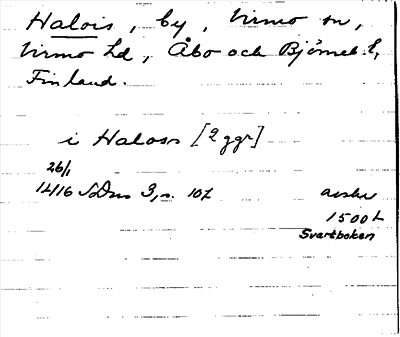 Halois, by, Virmo sn,
Virmo hd, Åbo och Björneb. l,
Finland.
i Halosn [2 ggr]
26/1
1416 SDns 3, s. 102
avskr
1500 t
Svartboken